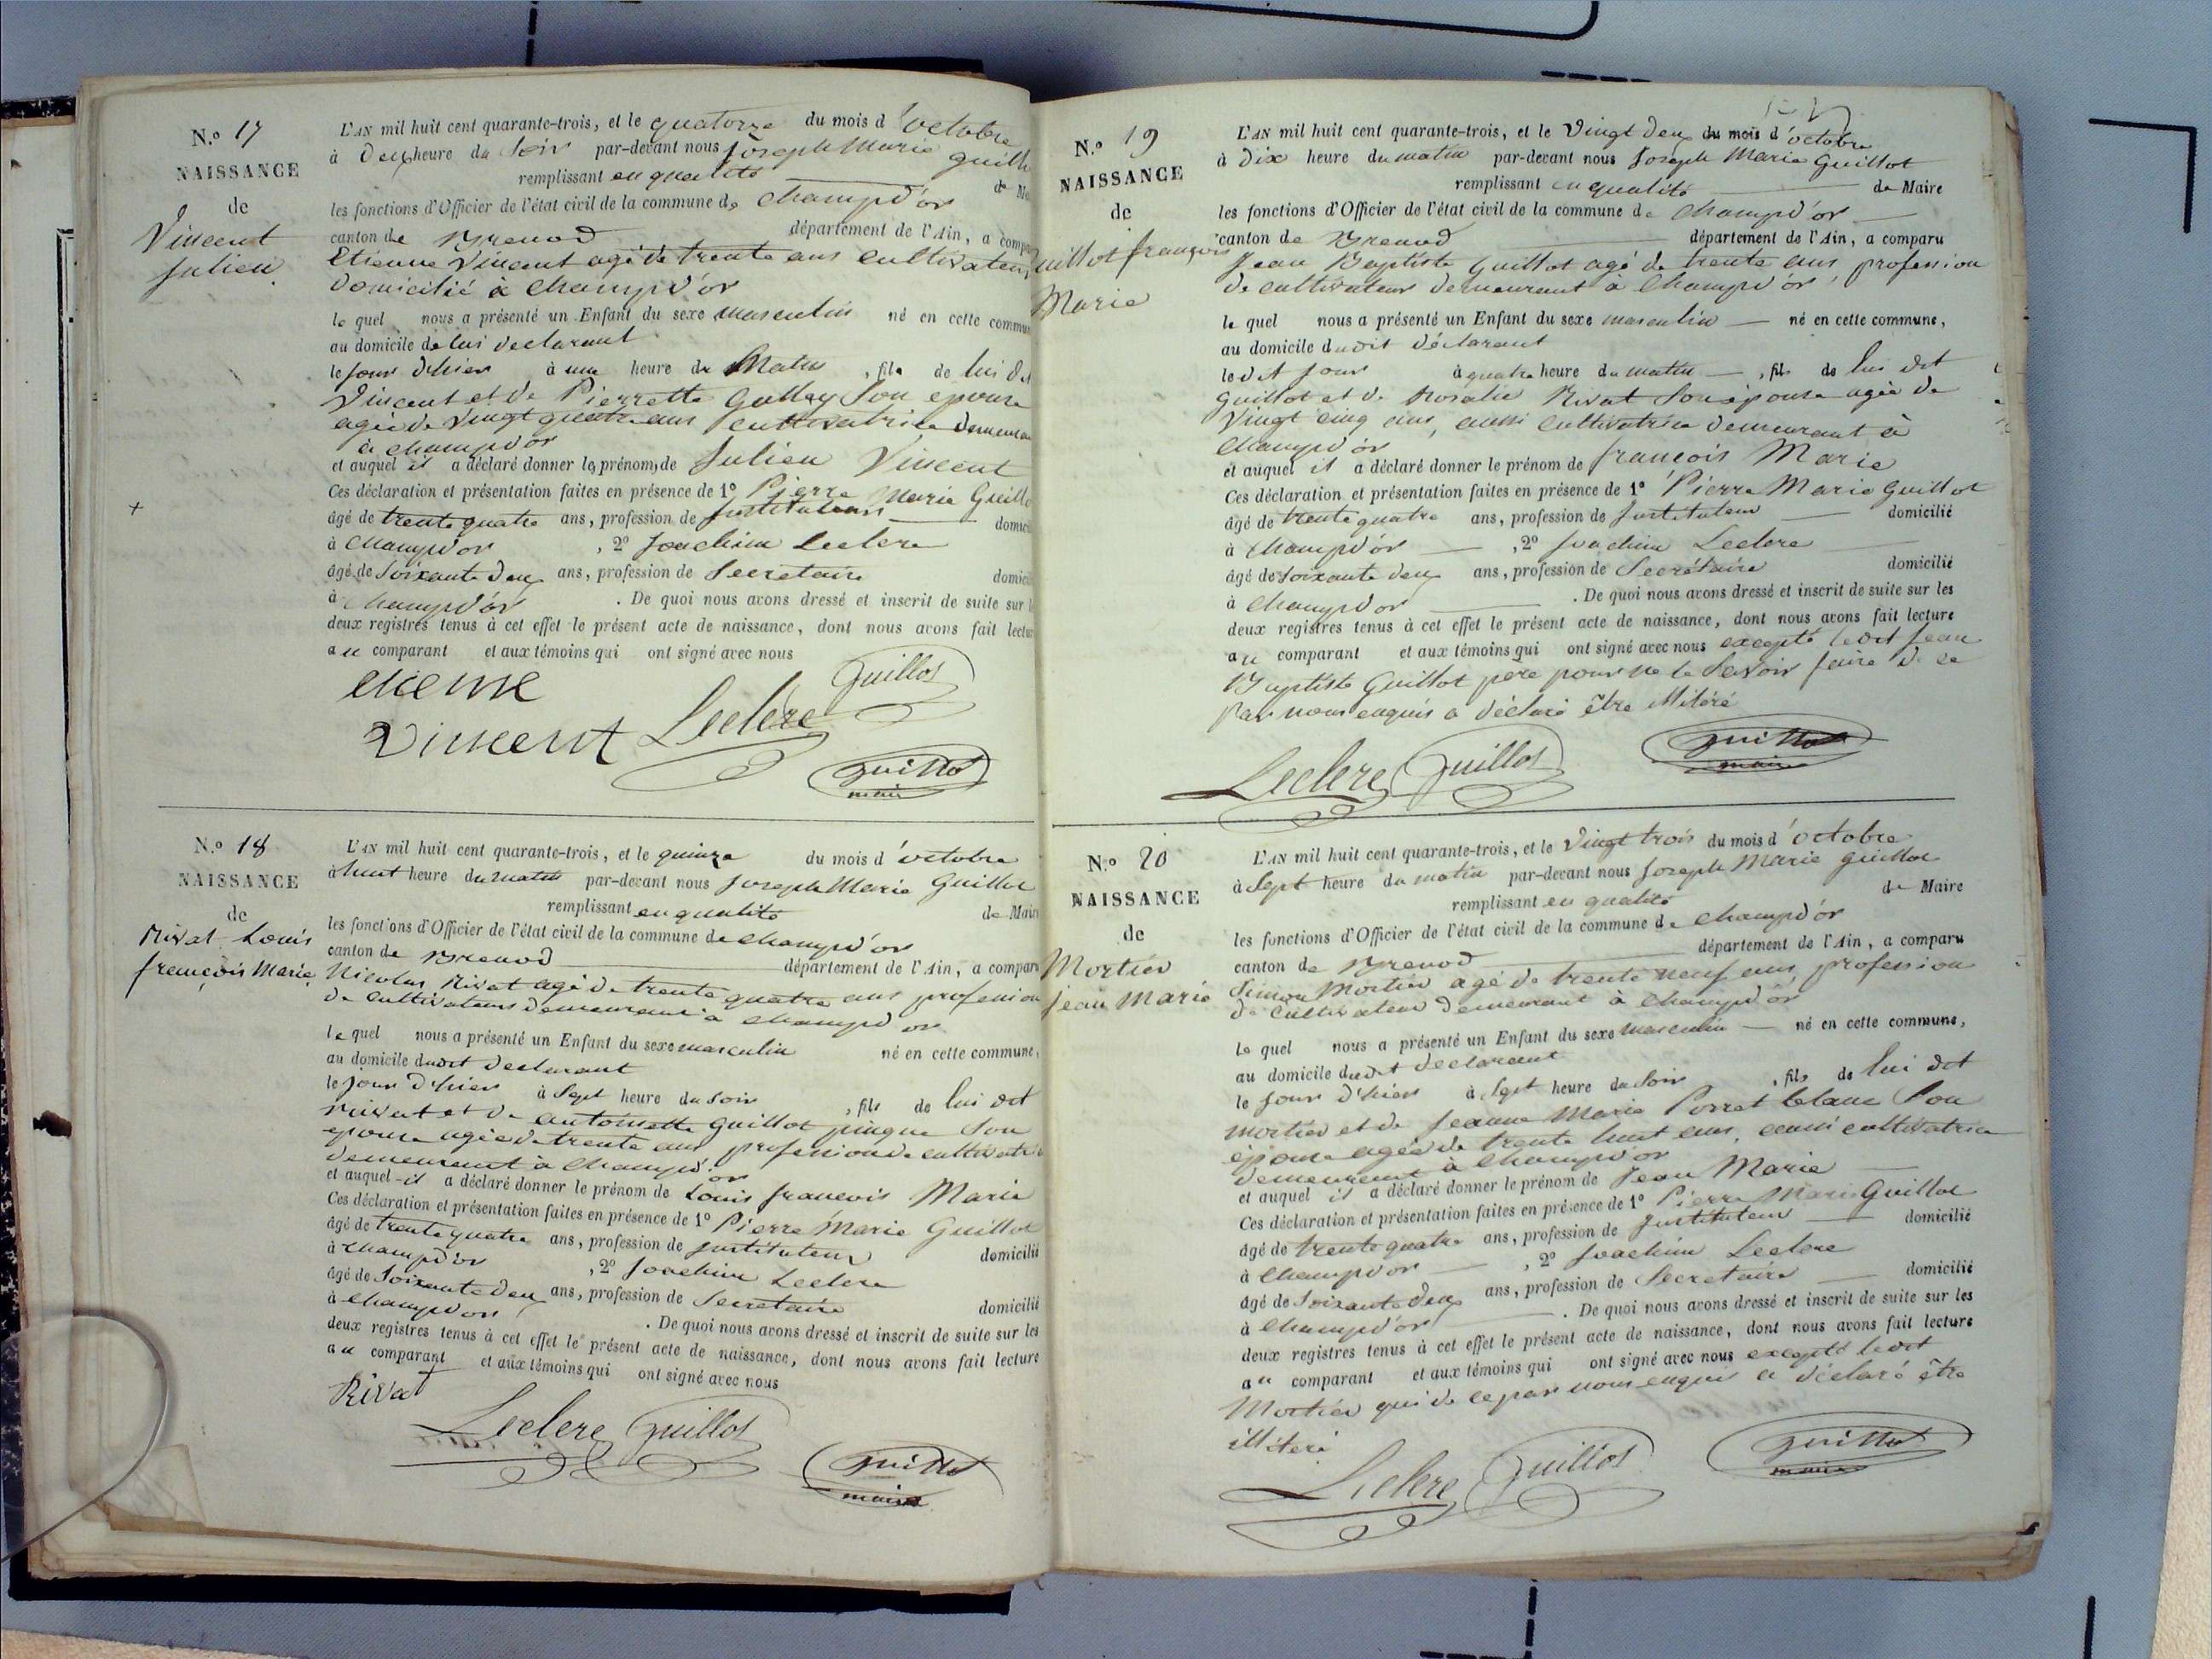 N.o 17
NAISSANCE
de
Vincent
Julien
L'AN mil huit cent quarante-trois, et le quatorze du mois d'octobre
à deux heure du Soir par-devant nous Joseph Marie Guillo
remplissant en qualité de Ma
les fonctions d'Officier de l'état civil de la commune de Champd'or
canton de Brenod département de l'Ain, a compa
Etienne Vincent agé de trente ans Cultivateur
Domicilié à Champd'or
le quel nous a présenté un Enfant du sexe masculin né en cette commun
au domicile de lui declarant
le jour d'hier à une heure du Matin, fils de lui dit
Vincent et de Pierrette Gallay Son epouse
agée de Vingt quatre ans cultivatrice demeuran
à champd'or
et auquel il a déclaré donner les prénoms de Julien Vincent
Ces déclaration et présentation faites en présence de 1º Pierre Marie Guillo
âgé de trente quatre ans, profession de Instituteur domici
à Champd'or, 2º Joachim Leclere
âgé de Soixante deux ans, profession de Secretaire domici
à Champd'or. De quoi nous avons dressé et inscrit de suite sur l
deux registres tenus à cet effet le présent acte de naissance, dont nous avons fait lectur
au comparant et aux témoins qui ont signé avec nous
etienne
Vincent Leclere Guillot
Guillot
maire
N.o 18
NAISSANCE
de
Rivat Louis
françois Marie
L'AN mil huit cent quarante-trois, et le quinze du mois d'octobre
à huit heure du matin par-devant nous Joseph Marie Guillot
remplissant en qualité de Maire
les fonctions d'Officier de l'état civil de la commune de Champd'or
canton de Brenod département de l'Ain, a comparu
Nicolas Rivat agé de trente quatre ans profession
de cultivateur demeurant à Champd'or
le quel nous a présenté un Enfant du sexe masculin né en cette commune,
au domicile dudit declarant
le jour d'hier à Sept heure du Soir, fils de lui dit
rivat et de antoinette Guillot pingue Son
epouse agée de trente ans profession de cultivatrice
demeurant à Champd'or
et auquel il a déclaré donner le prénom de Louis françois Marie
Ces déclaration et présentation faites en présence de 1º Pierre Marie Guillot
âgé de trente quatre ans, profession de Instituteur domicilié
à champd'or, 2º Joachim Leclere
âgé de Soixante deux ans, profession de Secretaire domicilié
à Champd'or. De quoi nous avons dressé et inscrit de suite sur les
deux registres tenus à cet effet le présent acte de naissance, dont nous avons fait lecture
au comparant et aux témoins qui ont signé avec nous
Rivat
Leclere Guillot
Guillot
maire
N.o 19
NAISSANCE
de
uillot françois
Marie
L'AN mil huit cent quarante-trois, et le Vingt deux du mois d'octobre
à dix heure du matin par-devant nous Joseph Marie Guillot
remplissant en qualité de Maire
les fonctions d'Officier de l'état civil de la commune de Champd'or
canton de Brenod département de l'Ain, a comparu
Jean Baptiste Guillot agé de trente ans, profession
de cultivateur demeurant à Champd'or,
le quel nous a présenté un Enfant du sexe masculin né en cette commune,
au domicile dudit déclarant
le dit jour à quatre heure du matin, fils de lui dit
Guillot et de Rosalie Rivat Son épouse agée de
Vingt cinq ans, aussi Cultivatrice demeurant à
Champd'or
et auquel il a déclaré donner le prénom de françois Marie
Ces déclaration et présentation faites en présence de 1º Pierre Marie Guillot
âgé de trente quatre ans, profession de Instituteur domicilié
à Champd'or, 2º Joachim Leclere
âgé de Soixante deux ans, profession de Secrétaire domicilié
à Champd'or. De quoi nous avons dressé et inscrit de suite sur les
deux registres tenus à cet effet le présent acte de naissance, dont nous avons fait lecture
au comparant et aux témoins qui ont signé avec nous excepté ledit Jean
Baptiste Guillot père pour ne le Savoir faire de ce
par nous enquis a déclaré être illitéré
Leclere Guillot
Guillot
maire
N.o 20
NAISSANCE
de
Mortier
Jean Marie
L'AN mil huit cent quarante-trois, et le Vingt trois du mois d'octobre
à Sept heure du matin par-devant nous Joseph Marie Guillot
remplissant en qualité de Maire
les fonctions d'Officier de l'état civil de la commune de Champd'or
canton de Brenod département de l'Ain, a comparu
Simon Mortier agé de trente neuf ans, profession
de Cultivateur demeurant à Champd'or
le quel nous a présenté un Enfant du sexe masculin né en cette commune,
au domicile dudit declarant
le jour d'hier à Sept heure du Soir, fils de lui dit
mortier et de Jeanne Marie Porret blanc Son
épouse agée de trente huit ans, aussi cultivatrice
demeurant à Champd'or
et auquel il a déclaré donner le prénom de Jean Marie
Ces déclaration et présentation faites en présence de 1º Pierre Marie Guillot
âgé de trente quatre ans, profession de Instituteur domicilié
à Champd'or, 2º Joachim Leclere
âgé de Soixante deux ans, profession de Secretaire domicilié
à Champd'or. De quoi nous avons dressé et inscrit de suite sur les
deux registres tenus à cet effet le présent acte de naissance, dont nous avons fait lecture
au comparant et aux témoins qui ont signé avec nous excepté ledit
Mortier qui de ce par nous enquis a déclaré être
illitéré
Leclere Guillot
Guillot
maire